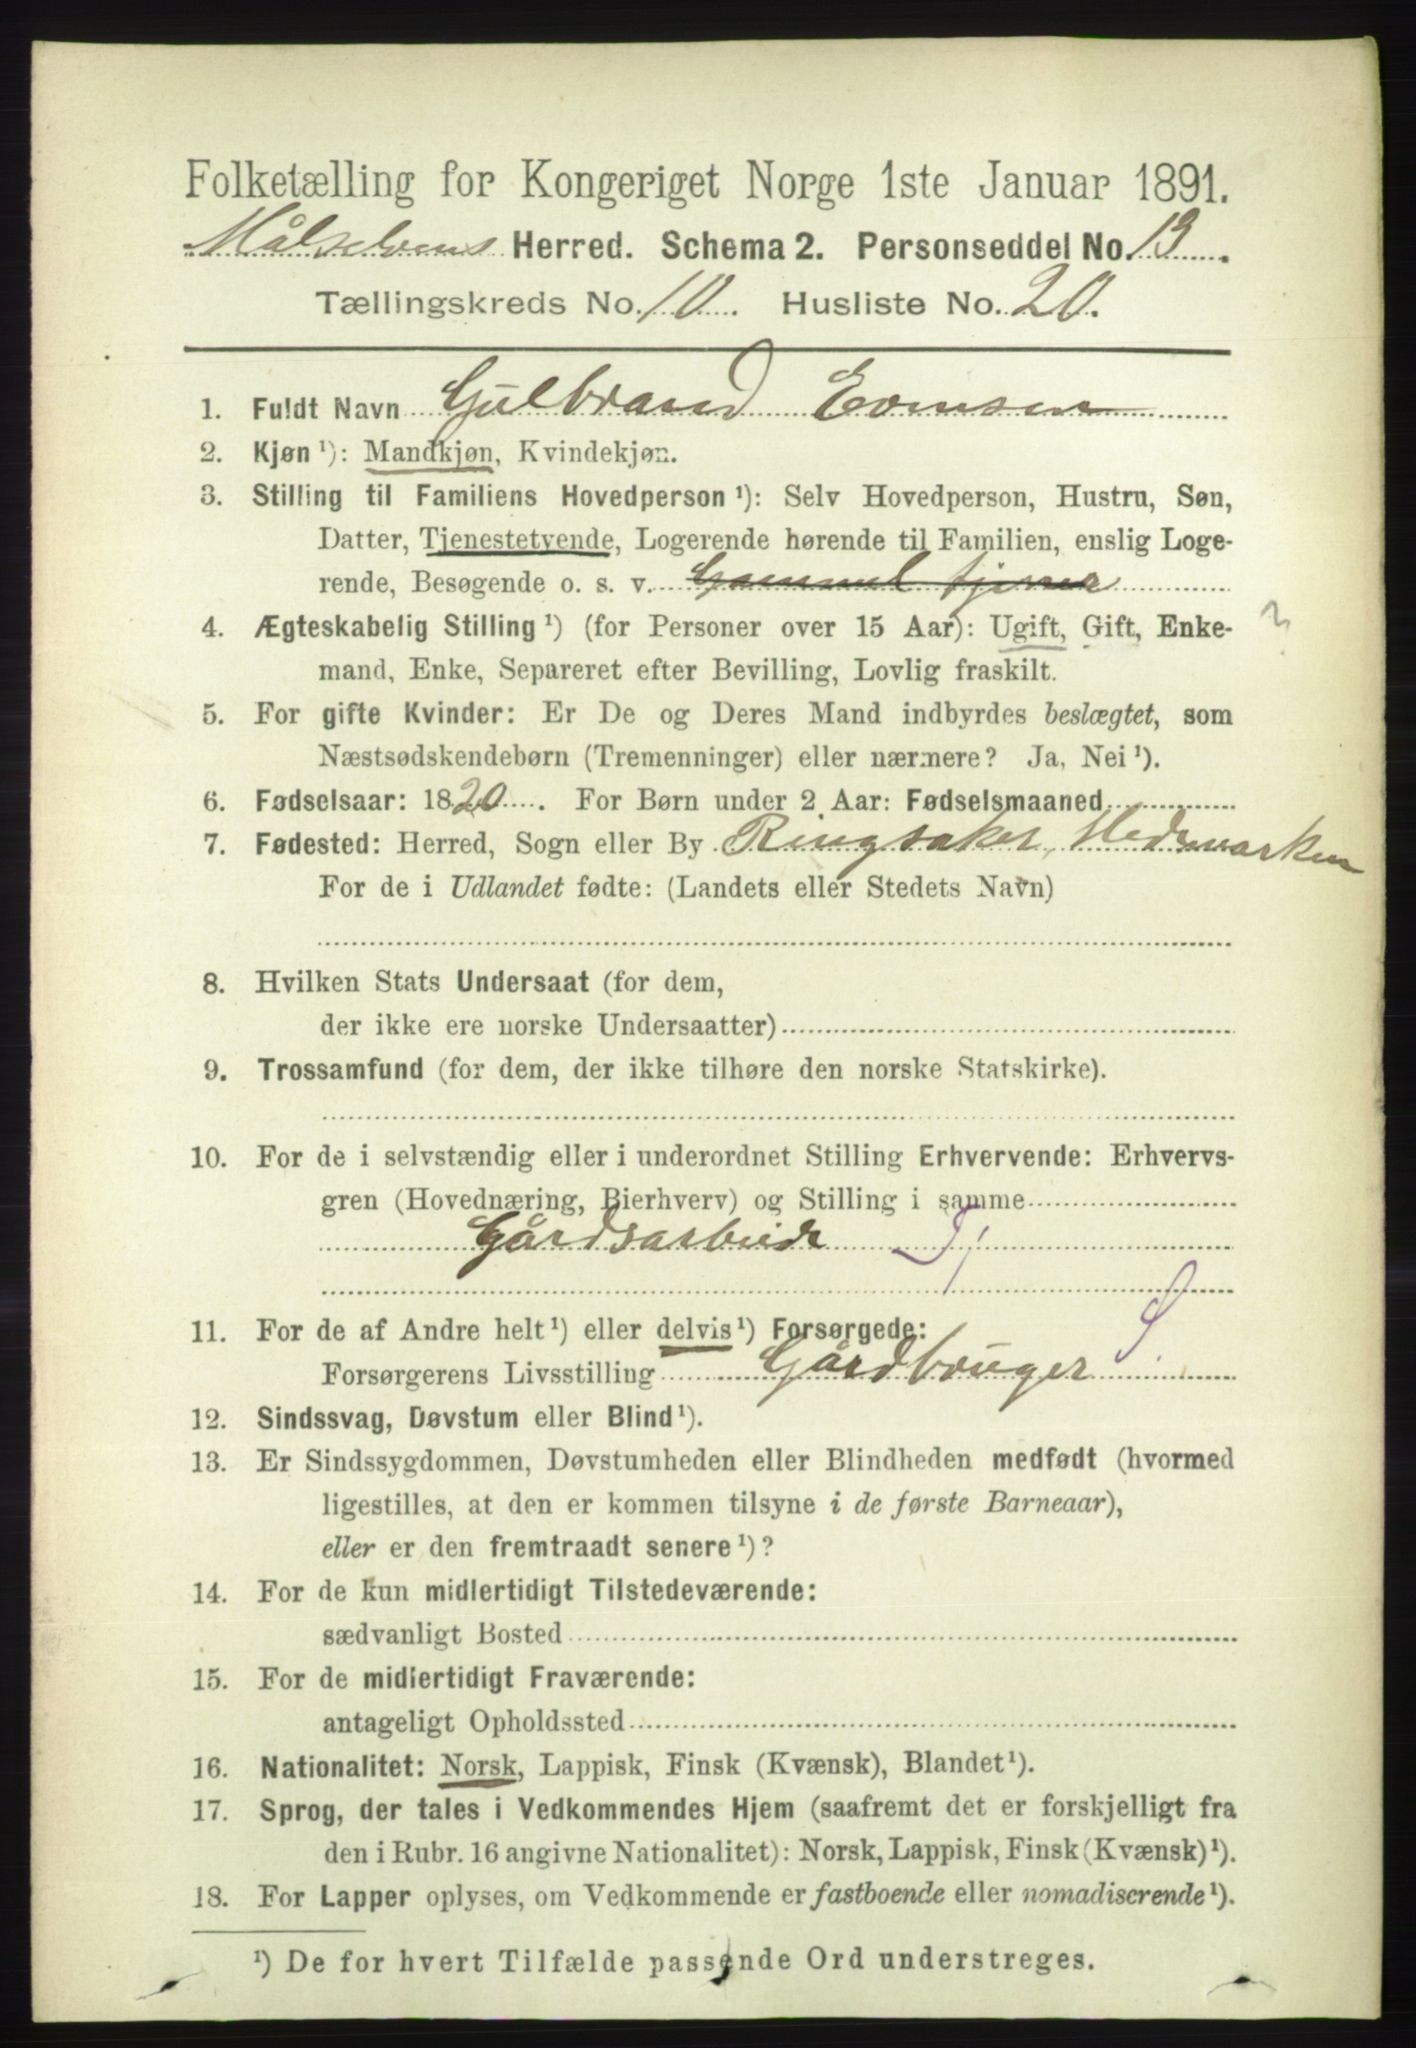 Folketælling for Kongeriget Norge 1ste Januar 1891.
Målselvens Herred. Schema 2. Personseddel No. 13.
Tællingskreds No. 10. Husliste No. 20.
1. Fuldt Navn Gulbrand Evensen
2. Kjøn ¹): Mandkjøn, Kvindekjøn.
3. Stilling til Familiens Hovedperson ¹): Selv Hovedperson, Hustru, Søn,
Datter, Tjenestetyende, Logerende hørende til Familien, enslig Loge-
rende, Besøgende o. s. v. Gammel tjener
4. Ægteskabelig Stilling ¹) (for Personer over 15 Aar): Ugift, Gift, Enke- ?
mand, Enke, Separeret efter Bevilling, Lovlig fraskilt.
5. For gifte Kvinder: Er De og Deres Mand indbyrdes beslægtet, som
Næstsødskendebørn (Tremenninger) eller nærmere? Ja, Nei ¹).
6. Fødselsaar: 1820. For Børn under 2 Aar: Fødselsmaaned
7. Fødested: Herred, Sogn eller By Ringsaker, Hedemarken
For de i Udlandet fødte: (Landets eller Stedets Navn)
8. Hvilken Stats Undersaat (for dem,
der ikke ere norske Undersaatter)
9. Trossamfund (for dem, der ikke tilhøre den norske Statskirke).
10. For de i selvstændig eller i underordnet Stilling Erhvervende: Erhvervs-
gren (Hovednæring, Bierhverv) og Stilling i samme
Gårdsarbeide Tj
11. For de af Andre helt ¹) eller delvis ¹) Forsørgede:
Forsørgerens Livsstilling Gårdbruger S.
12. Sindssvag, Døvstum eller Blind ¹).
13. Er Sindssygdommen, Døvstumheden eller Blindheden medfødt (hvormed
ligestilles, at den er kommen tilsyne i de første Barneaar),
eller er den fremtraadt senere ¹)?
14. For de kun midlertidigt Tilstedeværende:
sædvanligt Bosted
15. For de midlertidigt Fraværende:
antageligt Opholdssted
16. Nationalitet: Norsk, Lappisk, Finsk (Kvænsk), Blandet ¹).
17. Sprog, der tales i Vedkommendes Hjem (saafremt det er forskjelligt fra
den i Rubr. 16 angivne Nationalitet): Norsk, Lappisk, Finsk (Kvænsk) ¹).
18. For Lapper oplyses, om Vedkommende er fastboende eller nomadiserende ¹).
¹) De for hvert Tilfælde passende Ord understreges.